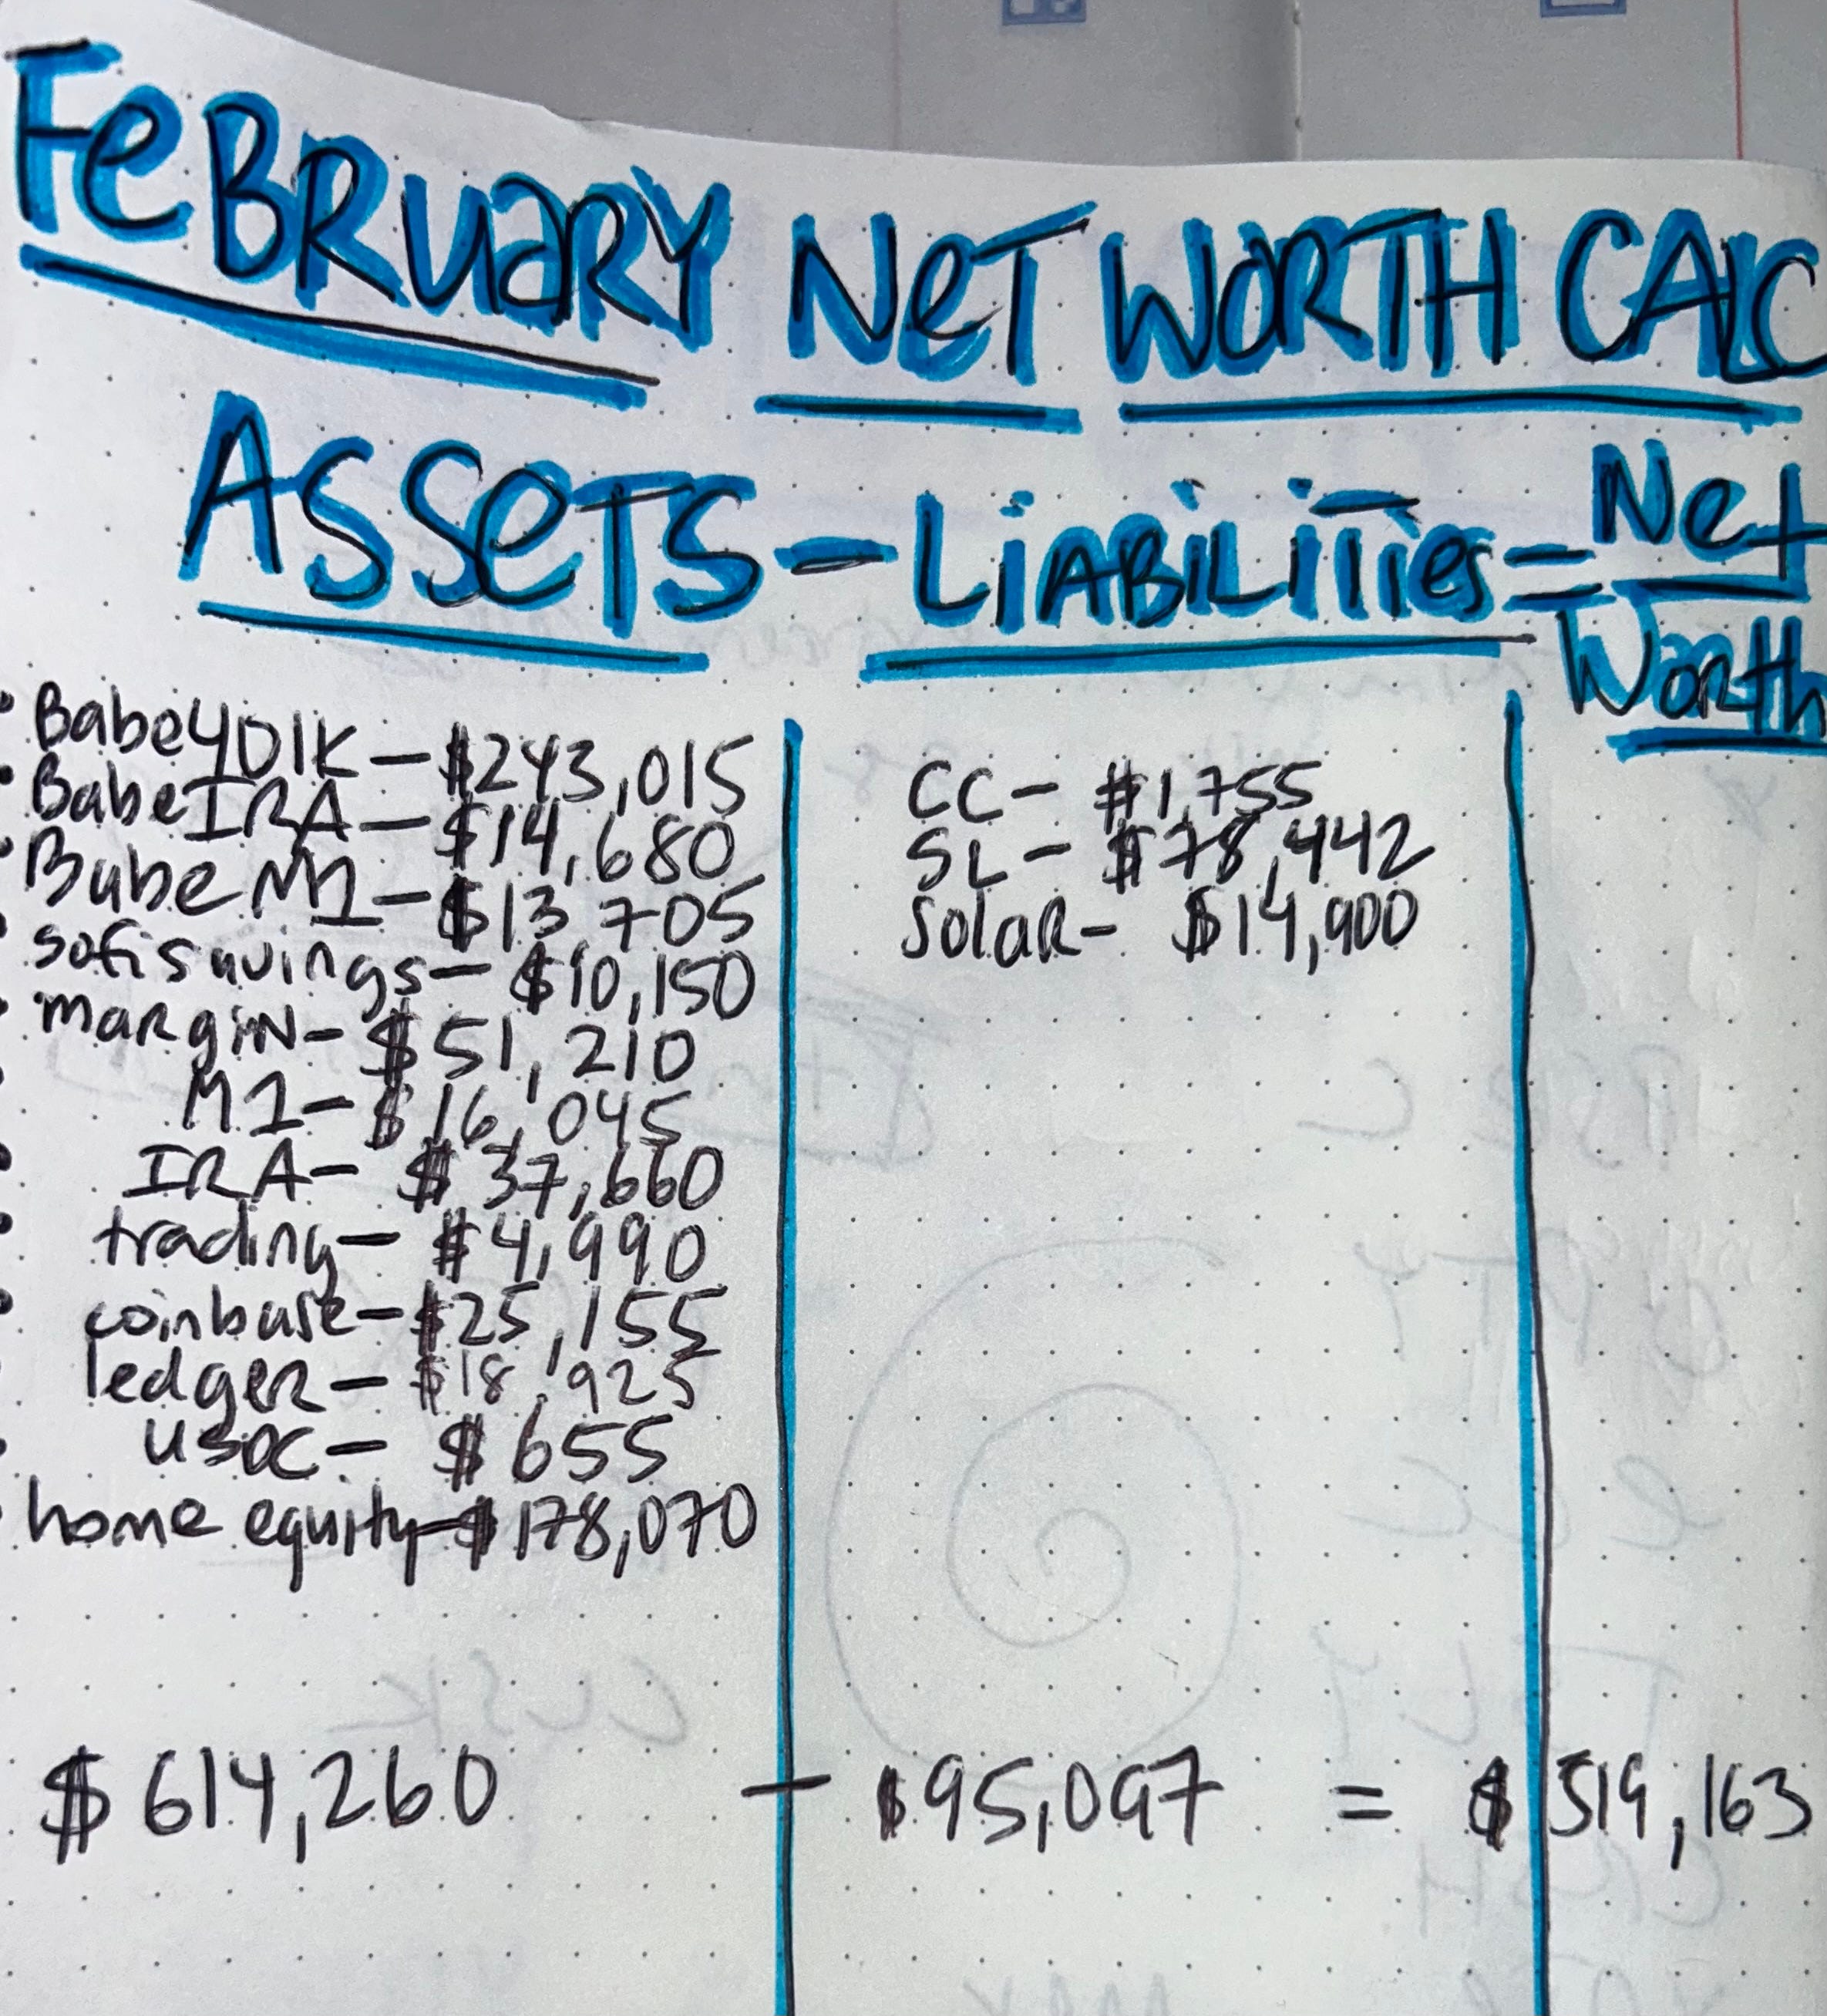 FeBRuaRY NeT WORTH CALC
ASSeTS - LiABiLiTies = Net Worth
• Babe 401K - $243,015
• Babe IRA - $14,680
• Babe M1 - $13,705
• sofi savings - $10,150
• margin - $51,210
• M1 - $16,045
• IRA - $37,660
• trading - $4,990
• coinbase - $25,155
• ledgeR - $18,925
• USDC - $655
• home equity - $178,070
CC - $1,755
SL - $78,442
SolaR - $14,900
$614,260 - $95,097 = $519,163